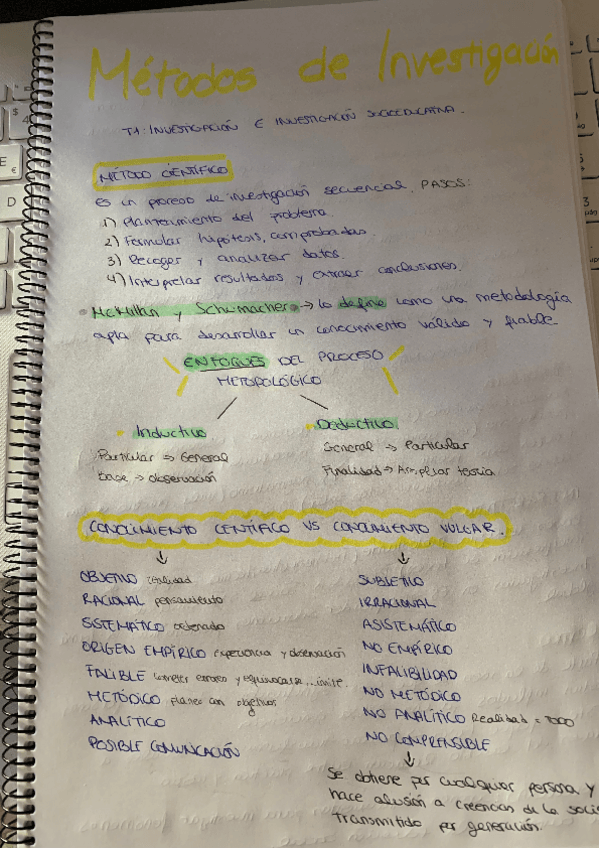 Métodos de Investigación
T1: INVESTIGACIÓN E INVESTIGACIÓN SOCIOEDUCATIVA.
MÉTODO CIENTÍFICO
Es un proceso de investigación secuencial. PASOS:
1) Planteamiento del problema
2) Formular hipótesis, comprobadas
3) Recoger y analizar datos.
4) Interpretar resultados y extraer conclusiones.
McMillan y Schumacher → lo define como una metodología
apta para desarrollar un conocimiento válido y fiable.
ENFOQUES DEL PROCESO
METODOLÓGICO
Inductivo
Deductivo
Particular → General
General → Particular
Base → observación
Finalidad → Ampliar teoría
CONOCIMIENTO CIENTÍFICO VS CONOCIMIENTO VULGAR.
OBJETIVO realidad
SUBJETIVO
RACIONAL pensamiento
IRRACIONAL
SISTEMÁTICO ordenado
ASISTEMÁTICO
ORIGEN EMPÍRICO experiencia y observación
NO EMPÍRICO
FALIBLE cometer errores y equivocarse...
INFALIBILIDAD
METÓDICO planes con objetivos
NO METÓDICO
ANALÍTICO
NO ANALÍTICO Realidad = TODO
POSIBLE COMUNICACIÓN
NO COMPRENSIBLE
Se obtiene por cualquier persona y
hace alusión a creencias de la soci
transmitido por generación.